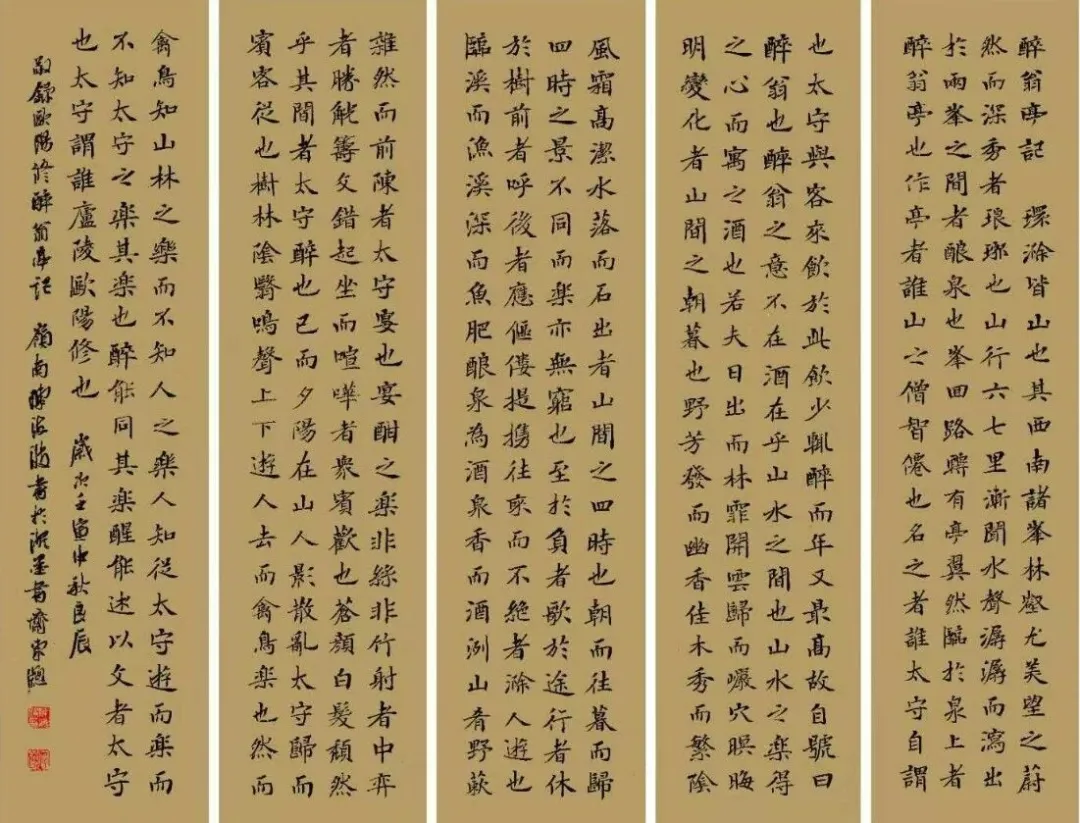 醉翁亭記 環滁皆山也其西南諸峯林壑尤美望之蔚
然而深秀者琅琊也山行六七里漸聞水聲潺潺而瀉出
於兩峯之間者酿泉也峯回路轉有亭翼然臨於泉上者
醉翁亭也作亭者誰山之僧智僊也名之者誰太守自謂
也太守與客來飲於此飲少輒醉而年又最高故自號曰
醉翁也醉翁之意不在酒在乎山水之間也山水之樂得
之心而寓之酒也若夫日出而林霏開雲歸而巖穴暝晦
明變化者山間之朝暮也野芳發而幽香佳木秀而繁陰
風霜高潔水落而石出者山間之四時也朝而往暮而歸
四時之景不同而樂亦無窮也至於負者歌於途行者休
於樹前者呼後者應傴僂提攜往來而不絕者滁人遊也
臨溪而漁溪深而魚肥酿泉為酒泉香而酒洌山肴野蔌
雜然而前陳者太守宴也宴酣之樂非絲非竹射者中弈
者勝觥籌交錯起坐而喧嘩者眾賓歡也蒼顏白髮頹然
乎其間者太守醉也已而夕陽在山人影散亂太守歸而
賓客從也樹林陰翳鳴聲上下遊人去而禽鳥樂也然而
禽鳥知山林之樂而不知人之樂人知從太守遊而樂而
不知太守之樂其樂也醉能同其樂醒能述以文者太守
也太守謂誰廬陵歐陽修也 歲次壬寅中秋良辰
敬錄歐陽修醉翁亭記 嶺南陳 書於 墨書齋 題